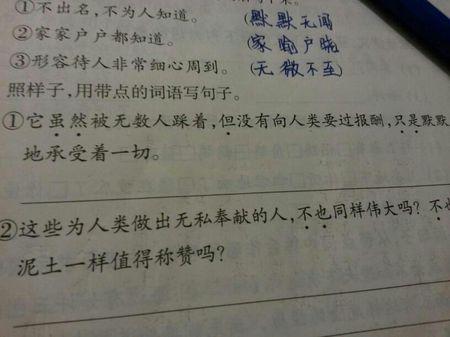 ①不出名,不为人知道。(默默无闻
②家家户户都知道。(家喻户晓
③形容待人非常细心周到。(无微不至)
照样子,用带点的词语写句子。
①它虽然被无数人踩着,但没有向人类要过报酬,只是默默
地承受着一切。
②这些为人类做出无私奉献的人,不也同样伟大吗?不也
泥土一样值得称赞吗?